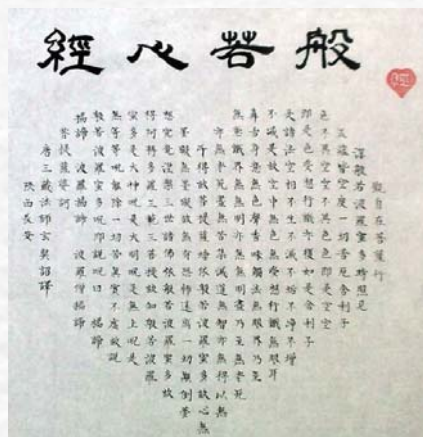 般若心經
經
觀自在菩薩行
深般若波羅蜜多時照見
五蘊皆空度一切苦厄舍利子
色不異空空不異色色即是空空
即是色受想行識亦復如是舍利子
是諸法空相不生不滅不垢不淨不增
不減是故空中無色無受想行識無眼耳
鼻舌身意無色聲香味觸法無眼界乃至
無意識界無無明亦無無明盡乃至無老死
亦無老死盡無苦集滅道無智亦無得以無
所得故菩提薩埵依般若波羅蜜多故心無
罣礙無罣礙故無有恐怖遠離一切顛倒夢
想究竟涅槃三世諸佛依般若波羅蜜多故
得阿耨多羅三藐三菩提故知般若波羅
蜜多是大神呪是大明呪是無上呪是
無等等呪能除一切苦真實不虛故說
般若波羅蜜多呪即說呪曰 揭諦
揭諦 波羅揭諦 波羅僧揭諦
菩提薩婆訶
唐三藏法師玄奘詔譯
陝西長安